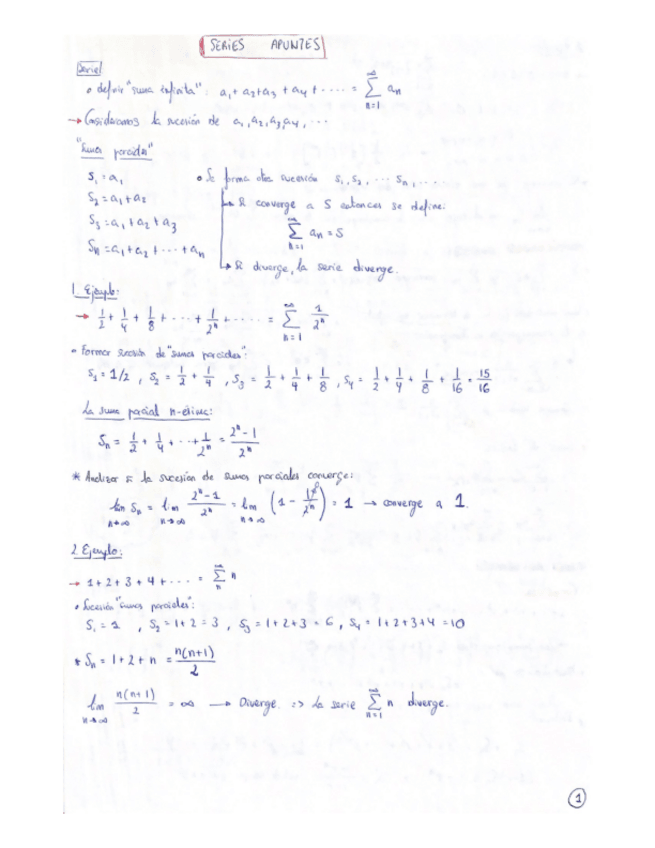 SERIES APUNTES
Serie:
• definir "suma infinita": a₁ + a₂ + a₃ + a₄ + ···· = ∑_{n=1}^{∞} aₙ
→ Consideramos la sucesión de a₁, a₂, a₃, a₄, ···
"Sumas parciales"
S₁ = a₁
S₂ = a₁ + a₂
S₃ = a₁ + a₂ + a₃
Sₙ = a₁ + a₂ + ··· + aₙ
• Se forma otra sucesión S₁, S₂, ··· Sₙ, ...
↳ Si converge a S entonces se define:
∑_{n=1}^{∞} aₙ = S
↳ Si diverge, la serie diverge.
1. Ejemplo:
→ 1/2 + 1/4 + 1/8 + ··· + 1/2ⁿ + ····· = ∑_{n=1}^{∞} 1/2ⁿ
• Formar sucesión de "sumas parciales":
S₁ = 1/2 , S₂ = 1/2 + 1/4 , S₃ = 1/2 + 1/4 + 1/8 , S₄ = 1/2 + 1/4 + 1/8 + 1/16 = 15/16
La suma parcial n-ésima:
Sₙ = 1/2 + 1/4 + ··· + 1/2ⁿ = (2ⁿ - 1)/2ⁿ
* Analizar si la sucesión de sumas parciales converge:
lim_{n→∞} Sₙ = lim_{n→∞} (2ⁿ - 1)/2ⁿ = lim_{n→∞} (1 - 1/2ⁿ) = 1 → converge a 1.
2. Ejemplo:
→ 1 + 2 + 3 + 4 + ···· = ∑_{n=1}^{∞} n
• Sucesión "sumas parciales":
S₁ = 1 , S₂ = 1 + 2 = 3 , S₃ = 1 + 2 + 3 = 6 , S₄ = 1 + 2 + 3 + 4 = 10
* Sₙ = 1 + 2 + n = n(n+1)/2
lim_{n→∞} n(n+1)/2 = ∞ → Diverge. => La serie ∑_{n=1}^{∞} n diverge.
1